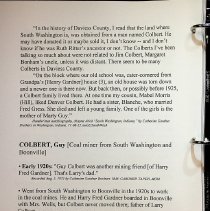 "In the history of Daviess County, I read that the land where
South Washington is, was obtained from a man named Colbert. He
may have donated it or maybe sold it, I don't know -- and I don't
know if he was Ruth Ritter's ancestor or not. The Colberts I've been
talking so much about were not related to Jim Colbert, Margaret
Bonham's uncle, unless it was distant. There seem to be many
Colberts in Daviess County.
"On the block where our old school was, cater-cornered from
Grandpa's [Henry Gardner] house (3), an old house was torn down
and a newer one is there now. But back then, or possibly before 1925,
a Colbert family lived there. At one time my cousin, Mabel Morris
(Hill), liked Denver Colbert. He had a sister, Blanche, who married
Fred Gress. She declared left a young family. One of the girls is the
mother of Marty Guy."
COLBERT, Guy [Coal miner from South Washington and
Boonville]
• Early 1920s: "Guy Colbert was another mining friend [of Harry
Fred Gardner]. That's Larry's dad."
• Went from South Washington to Boonville in the 1920s to work
in the coal mines. He and Harry Fred Gardner boarded in Boonville
with Mrs. Wells, but Colbert never moved there, father of Larry